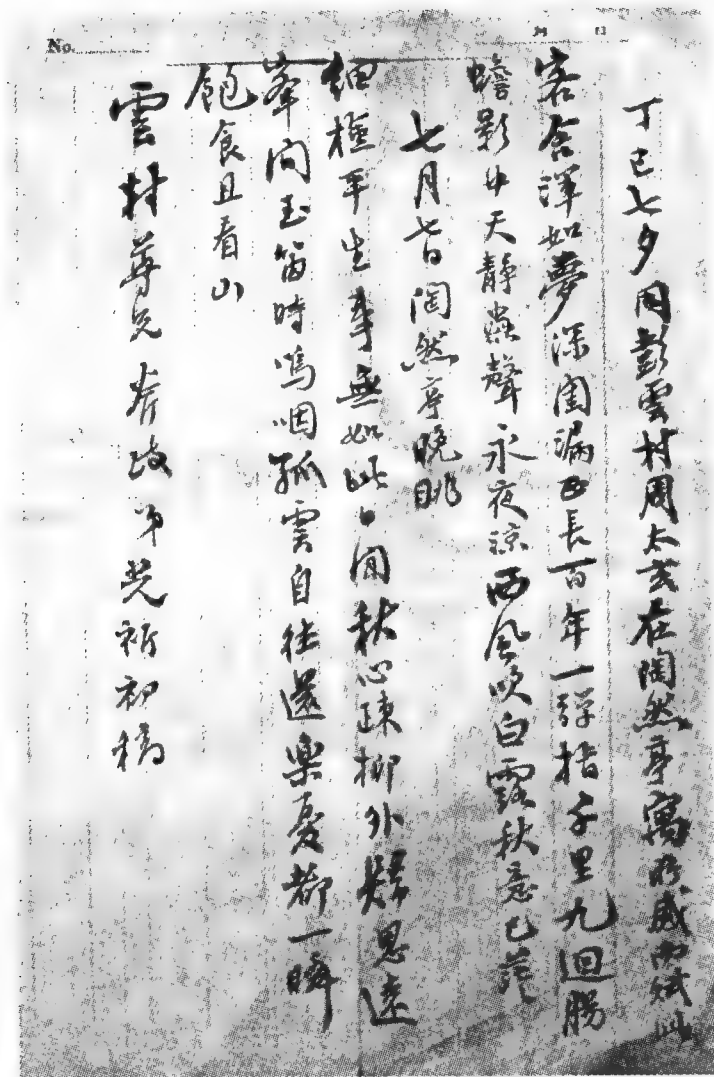 No.
丁巳七夕同彭雲村周太玄在陶然亭寓所感而賦此
客舍渾如夢深閨漏正長百年一彈指千里九迴腸
蟾影中天靜蟲聲永夜涼西風吹白露秋意已
七月七日陶然亭晚眺
細檢平生事無如此日閒秋心疎柳外歸思遠
峯間玉笛時嗚咽孤雲自往還樂憂都一瞬
飽食且看山
雲村尊兄斧政弟光祈初稿